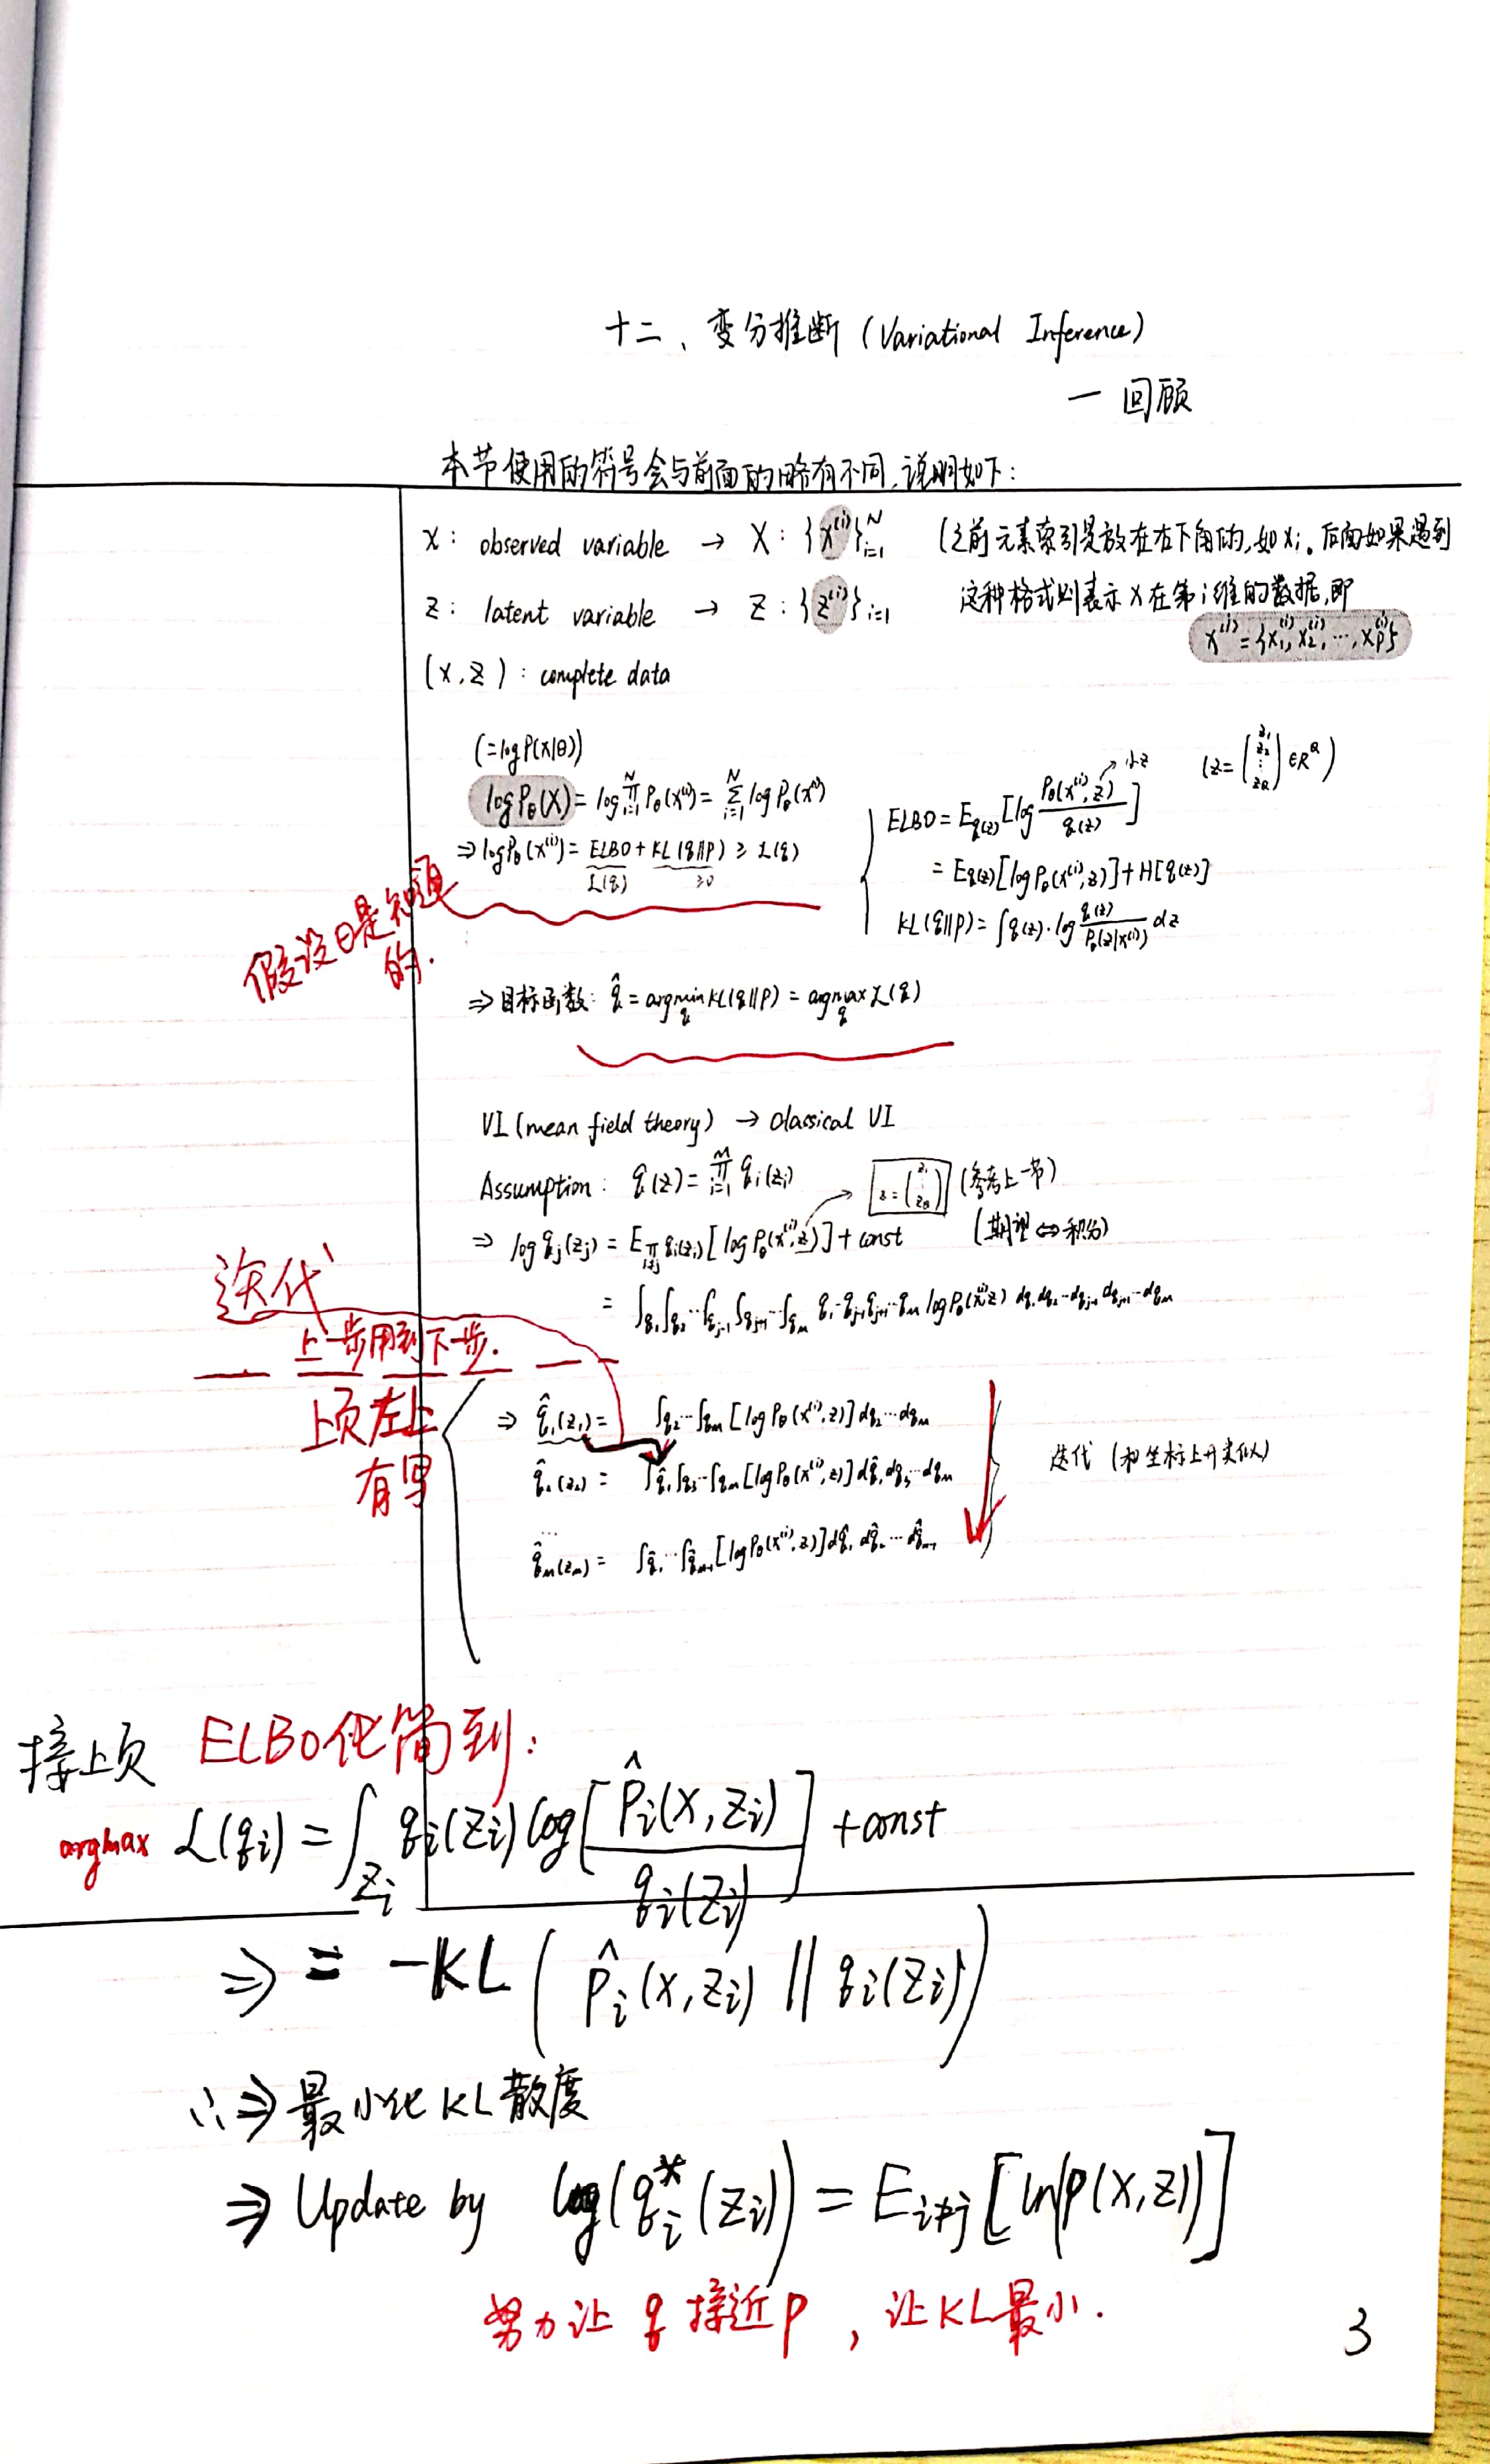 十二、变分推断 (Variational Inference)
一 回顾
本节使用的符号会与前面的略有不同,说明如下:
x: observed variable → X: {x⁽ⁱ⁾}ᵢ₌₁ᴺ (之前元素索引是放在右下角的,如xᵢ。后面如果遇到
z: latent variable → Z: {z⁽ⁱ⁾}ᵢ₌₁ 这种格式则表示x在第i维的数据,即
x⁽ⁱ⁾={x₁⁽ⁱ⁾,x₂⁽ⁱ⁾,…,xₚ⁽ⁱ⁾}
(x,z): complete data
(=logP(x|θ))
logP_θ(X) = log∏ᵢ₌₁ᴺ P_θ(x⁽ⁱ⁾) = ∑ᵢ₌₁ᴺ logP_θ(x⁽ⁱ⁾)
⇒ logP_θ(x⁽ⁱ⁾) = ELBO + KL(q||p) ≥ L(q)
L(q) ≥0
ELBO = E_q(z)[log P_θ(x⁽ⁱ⁾,z)/q(z)] → 小z (z=(z₁ z₂ ⋮ z_Q) ∈R^Q)
= E_q(z)[logP_θ(x⁽ⁱ⁾,z)] + H[q(z)]
KL(q||p) = ∫q(z)·log q(z)/P_θ(z|x⁽ⁱ⁾) dz
假设θ是知道
的.
⇒目标函数: q̂ = argmin_q KL(q||p) = argmax_q L(q)
VI (mean field theory) → classical VI
Assumption: q(z) = ∏ᵢ₌₁ᴹ qᵢ(zᵢ)
z=(z₁ ⋮ z_Q) (参考上一节)
⇒ log qⱼ(zⱼ) = E_∏i≠j qᵢ(zᵢ)[logP_θ(x⁽ⁱ⁾,z)] + const (期望⇔积分)
= ∫q₁∫q₂…∫qⱼ₋₁∫qⱼ₊₁…∫q_M q₁…qⱼ₋₁qⱼ₊₁…q_M logP_θ(x⁽ⁱ⁾,z) dq₁dq₂…dqⱼ₋₁dqⱼ₊₁…dq_M
迭代
上一步用到下一步.
上页左上
有写
⇒ q̂₁(z₁) = ∫q₂…∫q_M [logP_θ(x⁽ⁱ⁾,z)] dq₂…dq_M
q̂₂(z₂) = ∫q̂₁∫q₃…∫q_M [logP_θ(x⁽ⁱ⁾,z)] dq̂₁dq₃…dq_M
迭代 (和坐标上升类似)
…
q̂_M(z_M) = ∫q̂₁…∫q̂_M₋₁ [logP_θ(x⁽ⁱ⁾,z)] dq̂₁dq̂₂…dq̂_M₋₁
接上页 ELBO化简到:
argmax L(qᵢ) = ∫_Zᵢ qᵢ(Zᵢ) log[P̂ᵢ(X,Zᵢ)/qᵢ(Zᵢ)] + const
⇒ = -KL(P̂ᵢ(X,Zᵢ) || qᵢ(Zᵢ))
∴⇒ 最小化KL散度
⇒ Update by log(qᵢ*(Zᵢ)) = E_i≠j[ln p(X,Z)]
努力让 q 接近p , 让KL最小.
3